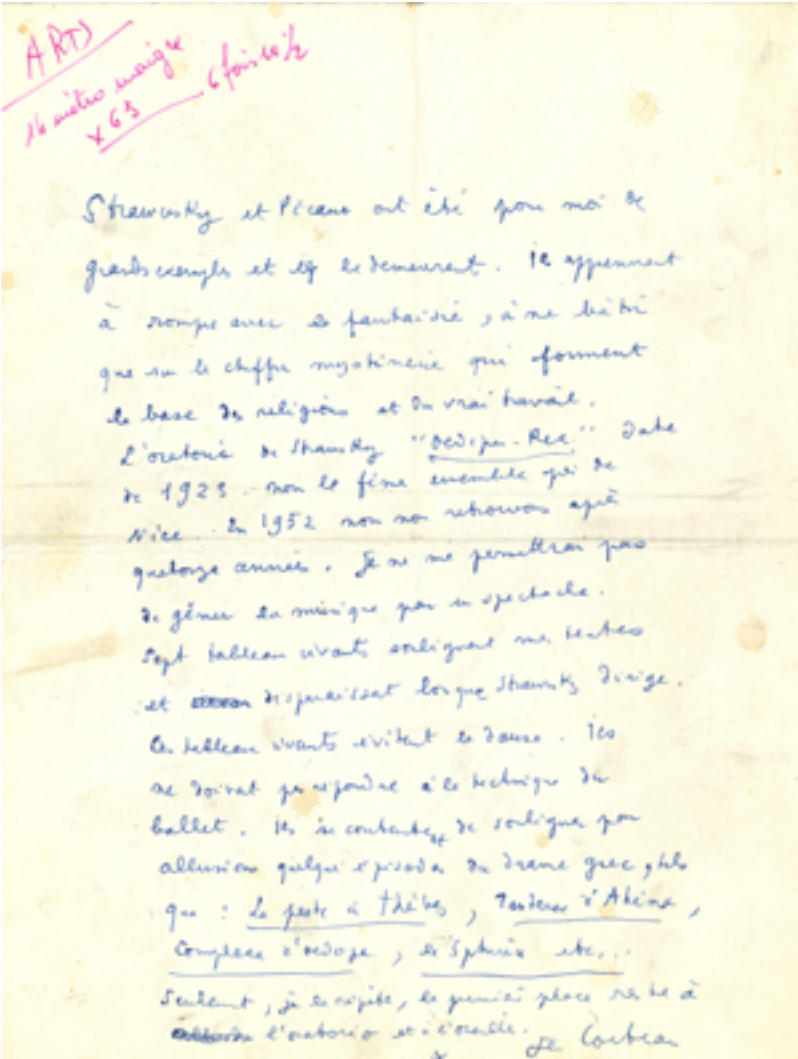 ARTS
14 maigre
x 65 6 fois 10 1/2
Strawinsky et Picasso ont été pour moi de
grands exemples et ils le demeurent. Ils apprennent
à rompre avec la fantaisie, à ne bâtir
que sur le chiffre qui forment
la base des religions et du vrai travail.
L'oratorio de Strawinsky "Oedipus-Rex" date
de 1923 nous le fîmes ensemble de
Nice. En 1952 nous nous retrouvons après
quatorze années. Je ne me permettrai pas
de gêner la musique par un spectacle.
Sept tableau vivants soulignent mes textes
et disparaissent lorsque Strawinsky dirige.
Ces tableau vivants évitent la danse. Ils
ne doivent pas répondre à la technique du
ballet. Ils se contentent de souligner par
allusions quelque épisodes du drame grec, tels
que : La peste à Thèbes, d'Athéna,
Complexe d'Oedipe, le Sphinx etc...
Seulement, je le répète, la première place reste à
l'oratorio et à l'oreille. Je Cocteau